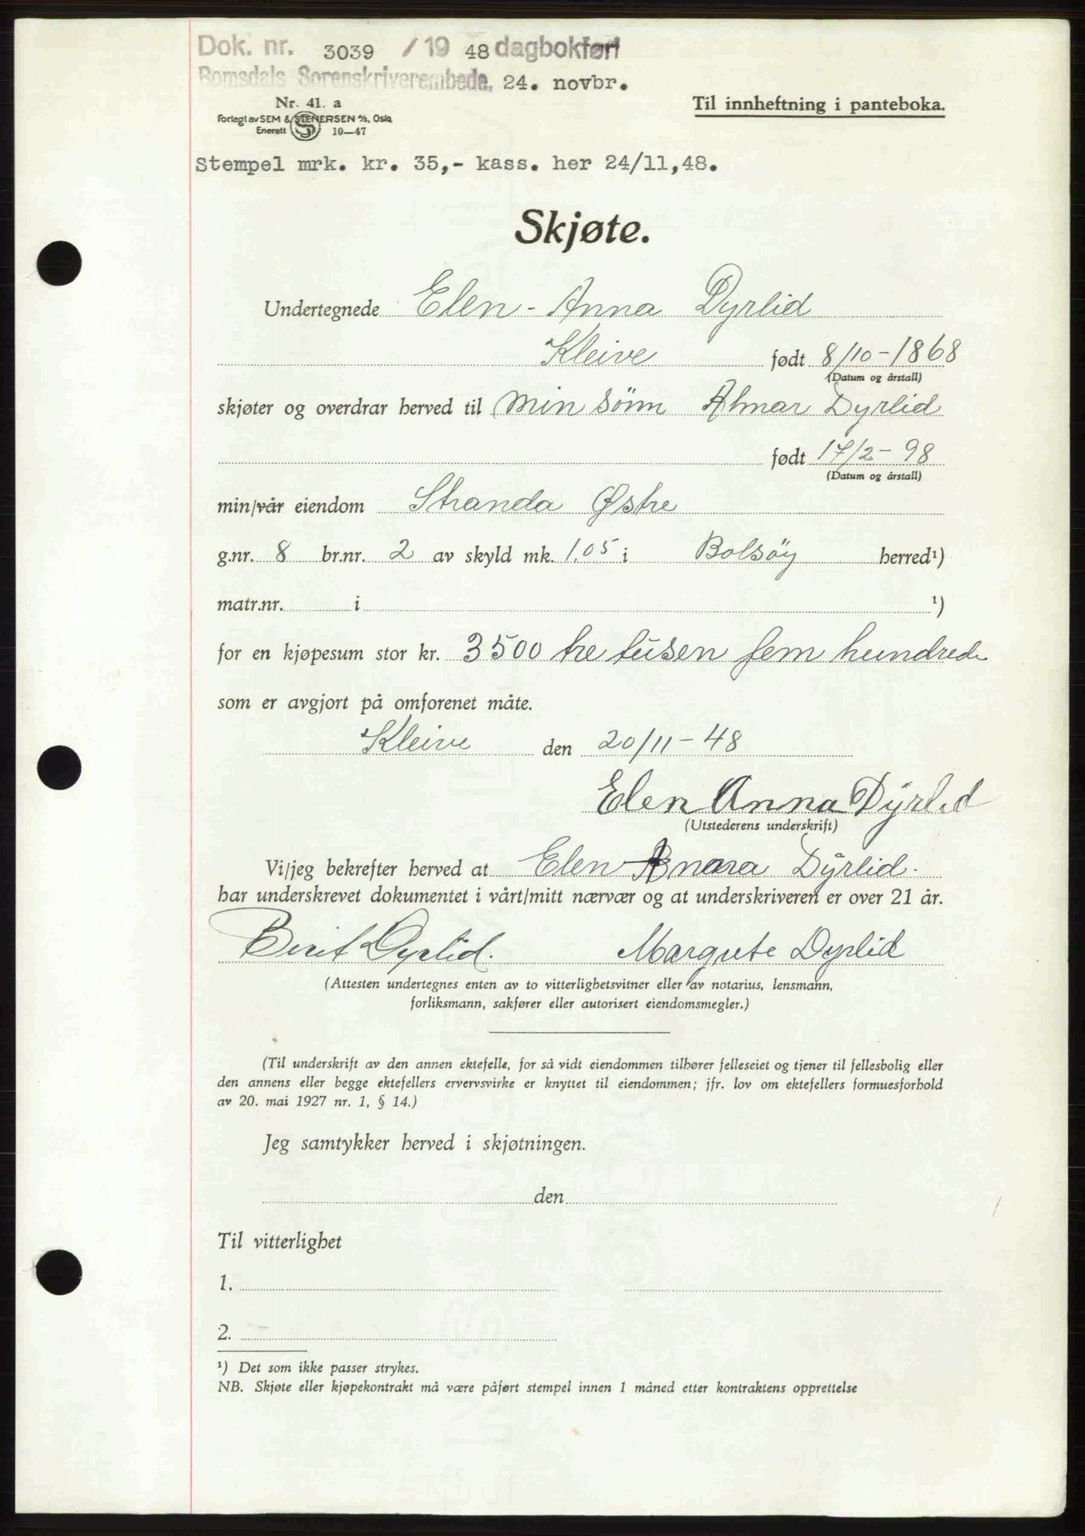 Dok. nr. 3039 / 19 48 dagbokført
Romsdals Sorenskriverembede, 24. novbr.
Nr. 41. a
Til innheftning i panteboka.
Forlagt av SEM & STENERSEN A/S, Oslo
Enerett S 10—47
Stempel mrk. kr. 35,- kass. her 24/11,48.
Skjøte.
Undertegnede Elen-Anna Dyrlid
Kleive født 8/10-1868
(Datum og årstall)
skjøter og overdrar herved til min sönn Almar Dyrlid
født 17/2-98
(Datum og årstall)
min/vår eiendom Stranda Østre
g.nr. 8 br.nr. 2 av skyld mk. 1,05 i Bolsöy herred¹)
matr.nr. i ¹)
for en kjøpesum stor kr. 3500 tre tusen fem hundrede
som er avgjort på omforenet måte.
Kleive den 20/11-48
Elen Anna Dyrlid
(Utstederens underskrift)
Vi/jeg bekrefter herved at Elen Anna Dyrlid.
har underskrevet dokumentet i vårt/mitt nærvær og at underskriveren er over 21 år.
Berit Dyrlid. Margrete Dyrlid
(Attesten undertegnes enten av to vitterlighetsvitner eller av notarius, lensmann,
forliksmann, sakfører eller autorisert eiendomsmegler.)
(Til underskrift av den annen ektefelle, for så vidt eiendommen tilhører felleseiet og tjener til fellesbolig eller
den annens eller begge ektefellers ervervsvirke er knyttet til eiendommen; jfr. lov om ektefellers formuesforhold
av 20. mai 1927 nr. 1, § 14.)
Jeg samtykker herved i skjøtningen.
den
Til vitterlighet
1.
2.
¹) Det som ikke passer strykes.
NB. Skjøte eller kjøpekontrakt må være påført stempel innen 1 måned etter kontraktens opprettelse